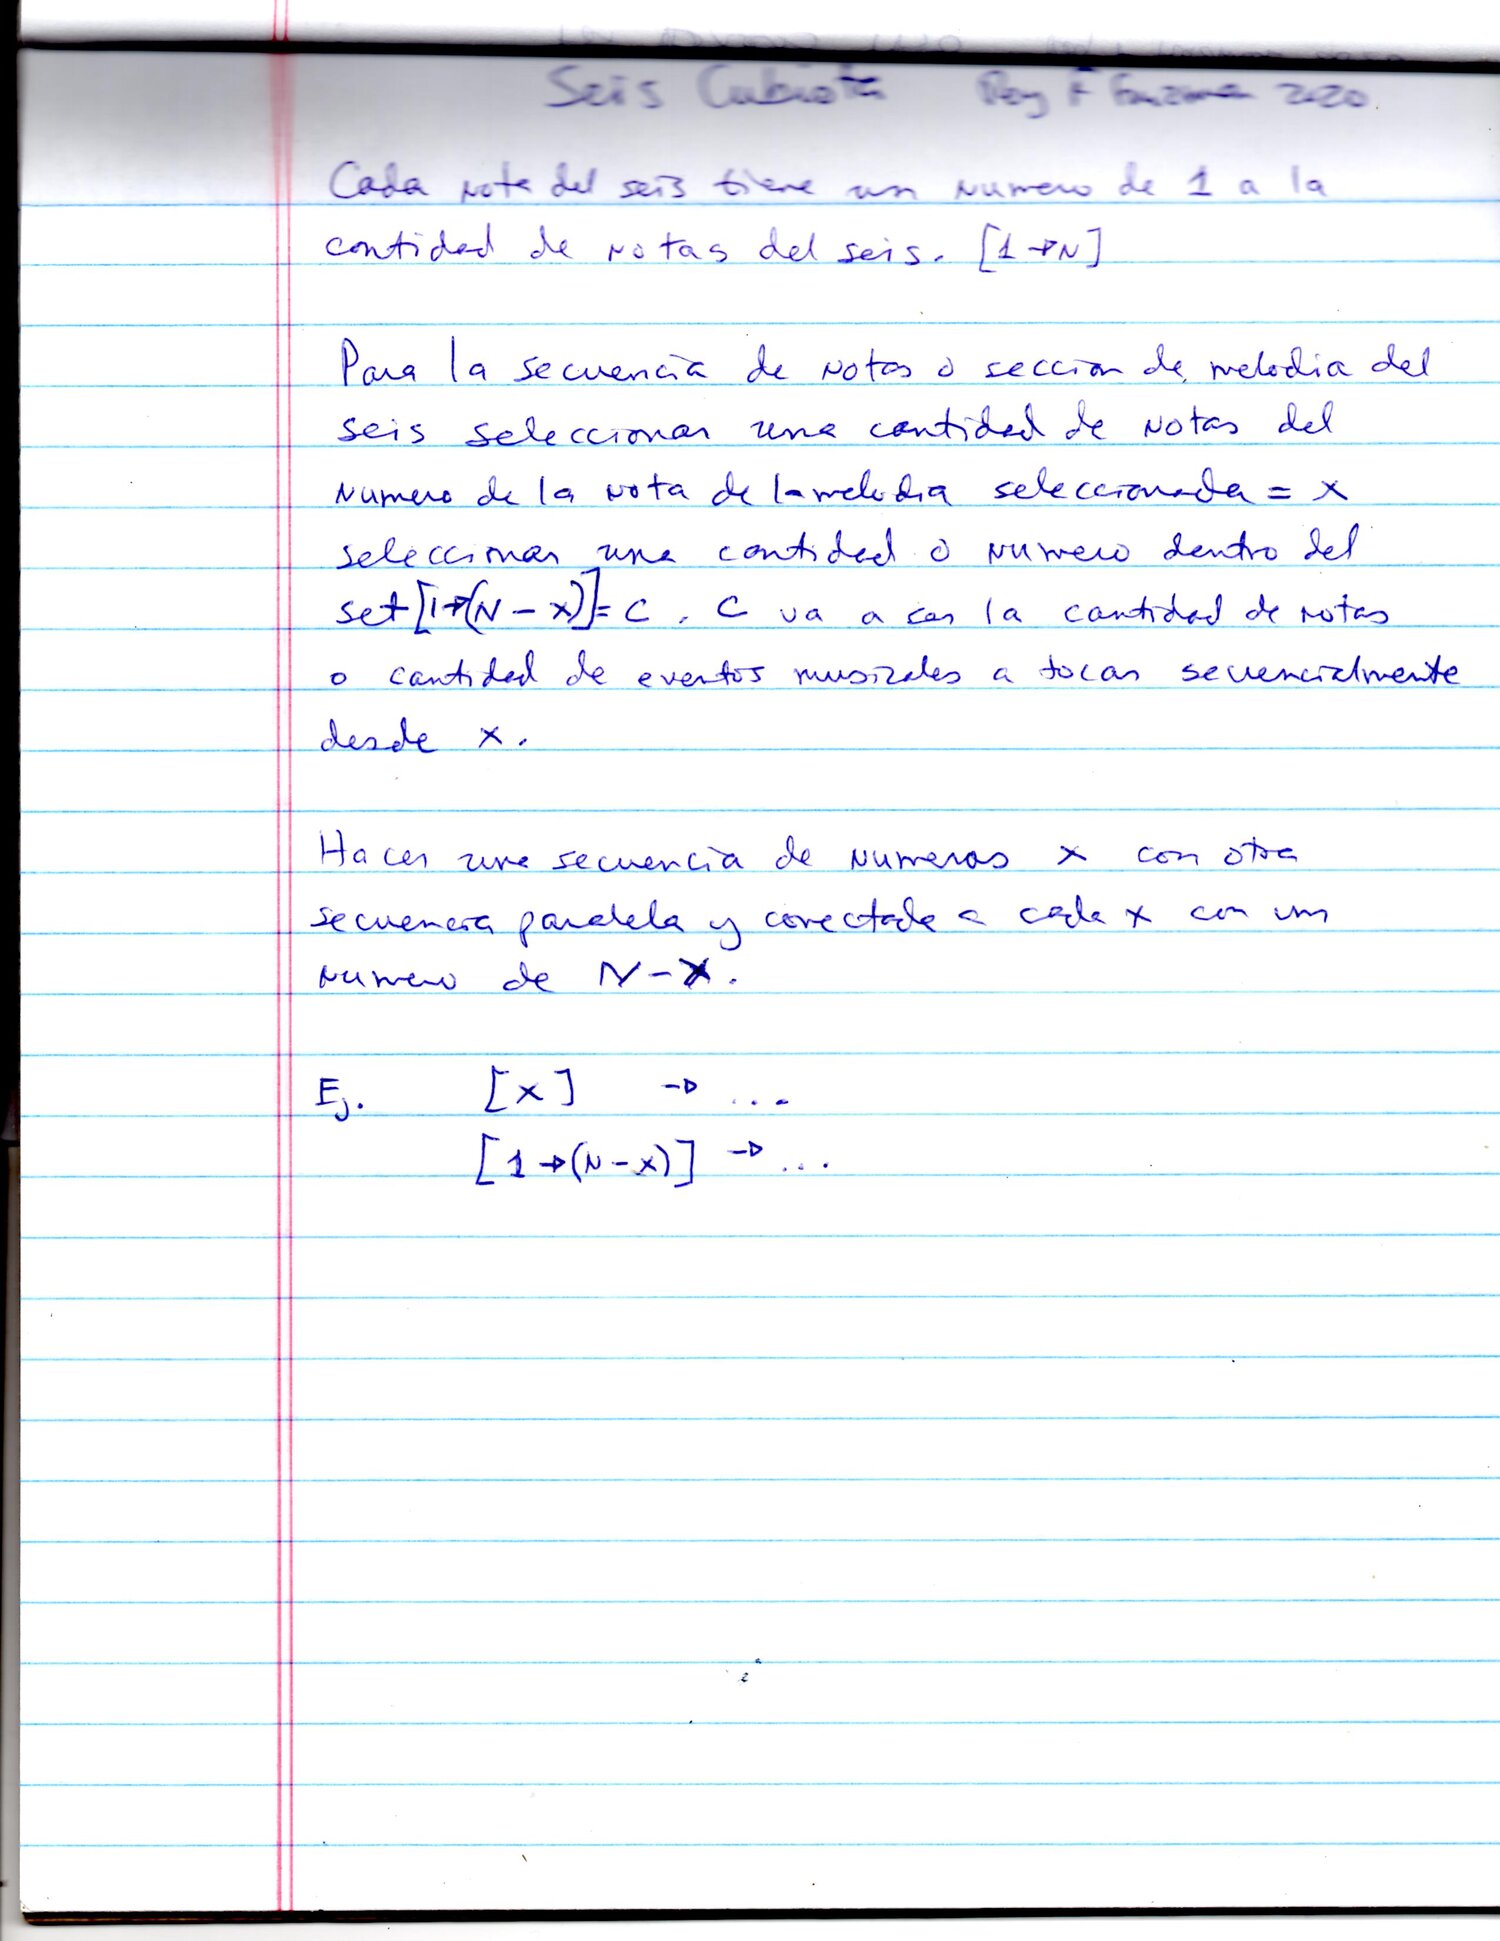 Seis Cubista 2020
Cada nota del seis tiene un numero de 1 a la
contidad de notas del seis. [1→N]
Para la secuencia de notas o seccion de melodia del
seis seleccionar una cantidad de notas del
numero de la nota de la melodia seleccionada = x
seleccionar una cantidad o numero dentro del
set [1→(N-x)]=C. C va a ser la cantidad de notas
o cantidad de eventos musicales a tocar secuencialmente
desde x.
Hacer una secuencia de numeros x con otra
secuencia paralela y conectada a cada x con un
numero de N-X.
Ej. [x] → ...
[1→(N-x)] → ...